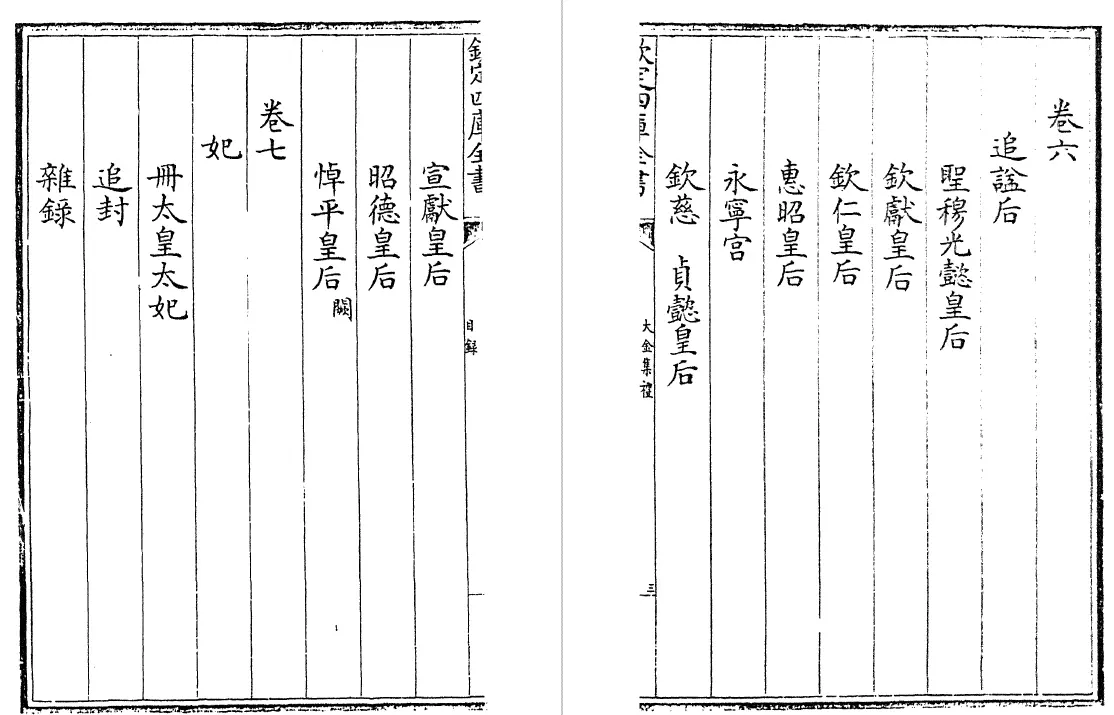 卷六
追諡后
聖穆光懿皇后
欽獻皇后
欽仁皇后
惠昭皇后
永寧宫
欽慈　貞懿皇后
欽定四庫全書
大金集禮
三
欽定四庫全書
目録
宣獻皇后
昭德皇后
悼平皇后闕
卷七
妃
冊太皇太妃
追封
雜録